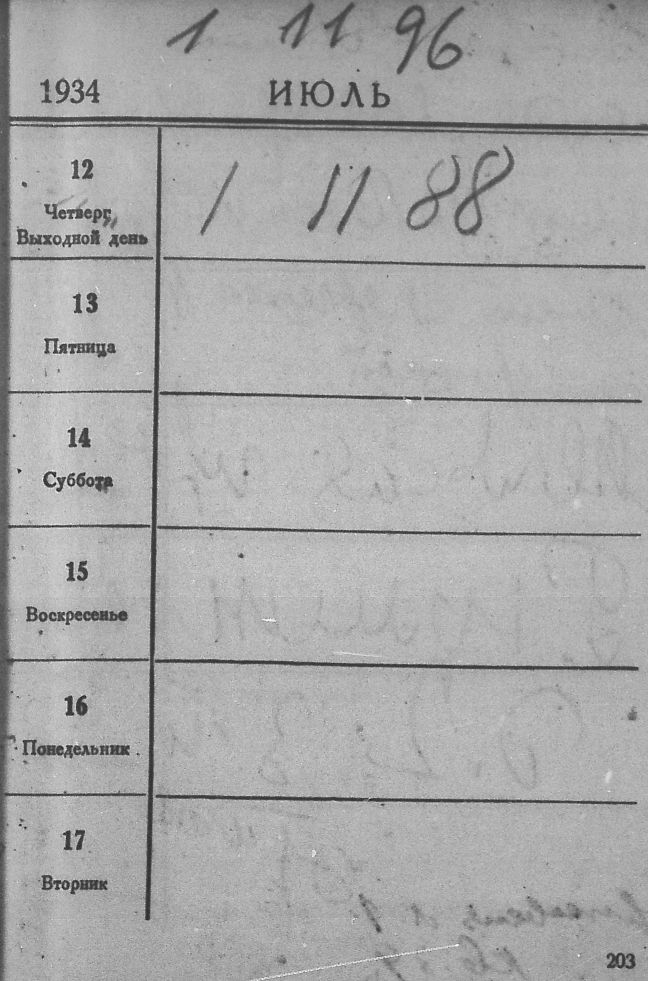 1 11 96
1934 ИЮЛЬ
12
Четверг
Выходной день
1 11 88
13
Пятница
14
Суббота
15
Воскресенье
16
Понедельник
17
Вторник
203